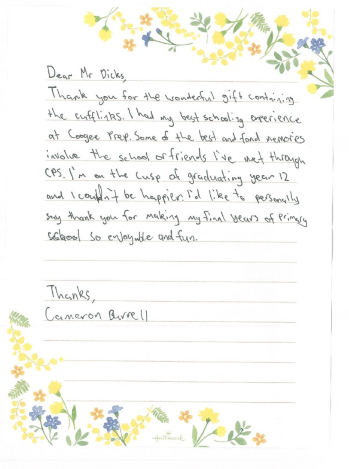 Dear Mr Dicks,
Thank you for the wonderful gift containing
the cufflinks. I had my best schooling experience
at Coogee Prep. Some of the best and fond memories
involve the school or friends I've met through
CPS. I'm on the cusp of graduating year 12
and I couldn't be happier. I'd like to personally
say thank you for making my final years of primary
school so enjoyable and fun.
Thanks,
Cameron Burrell
Hallmark